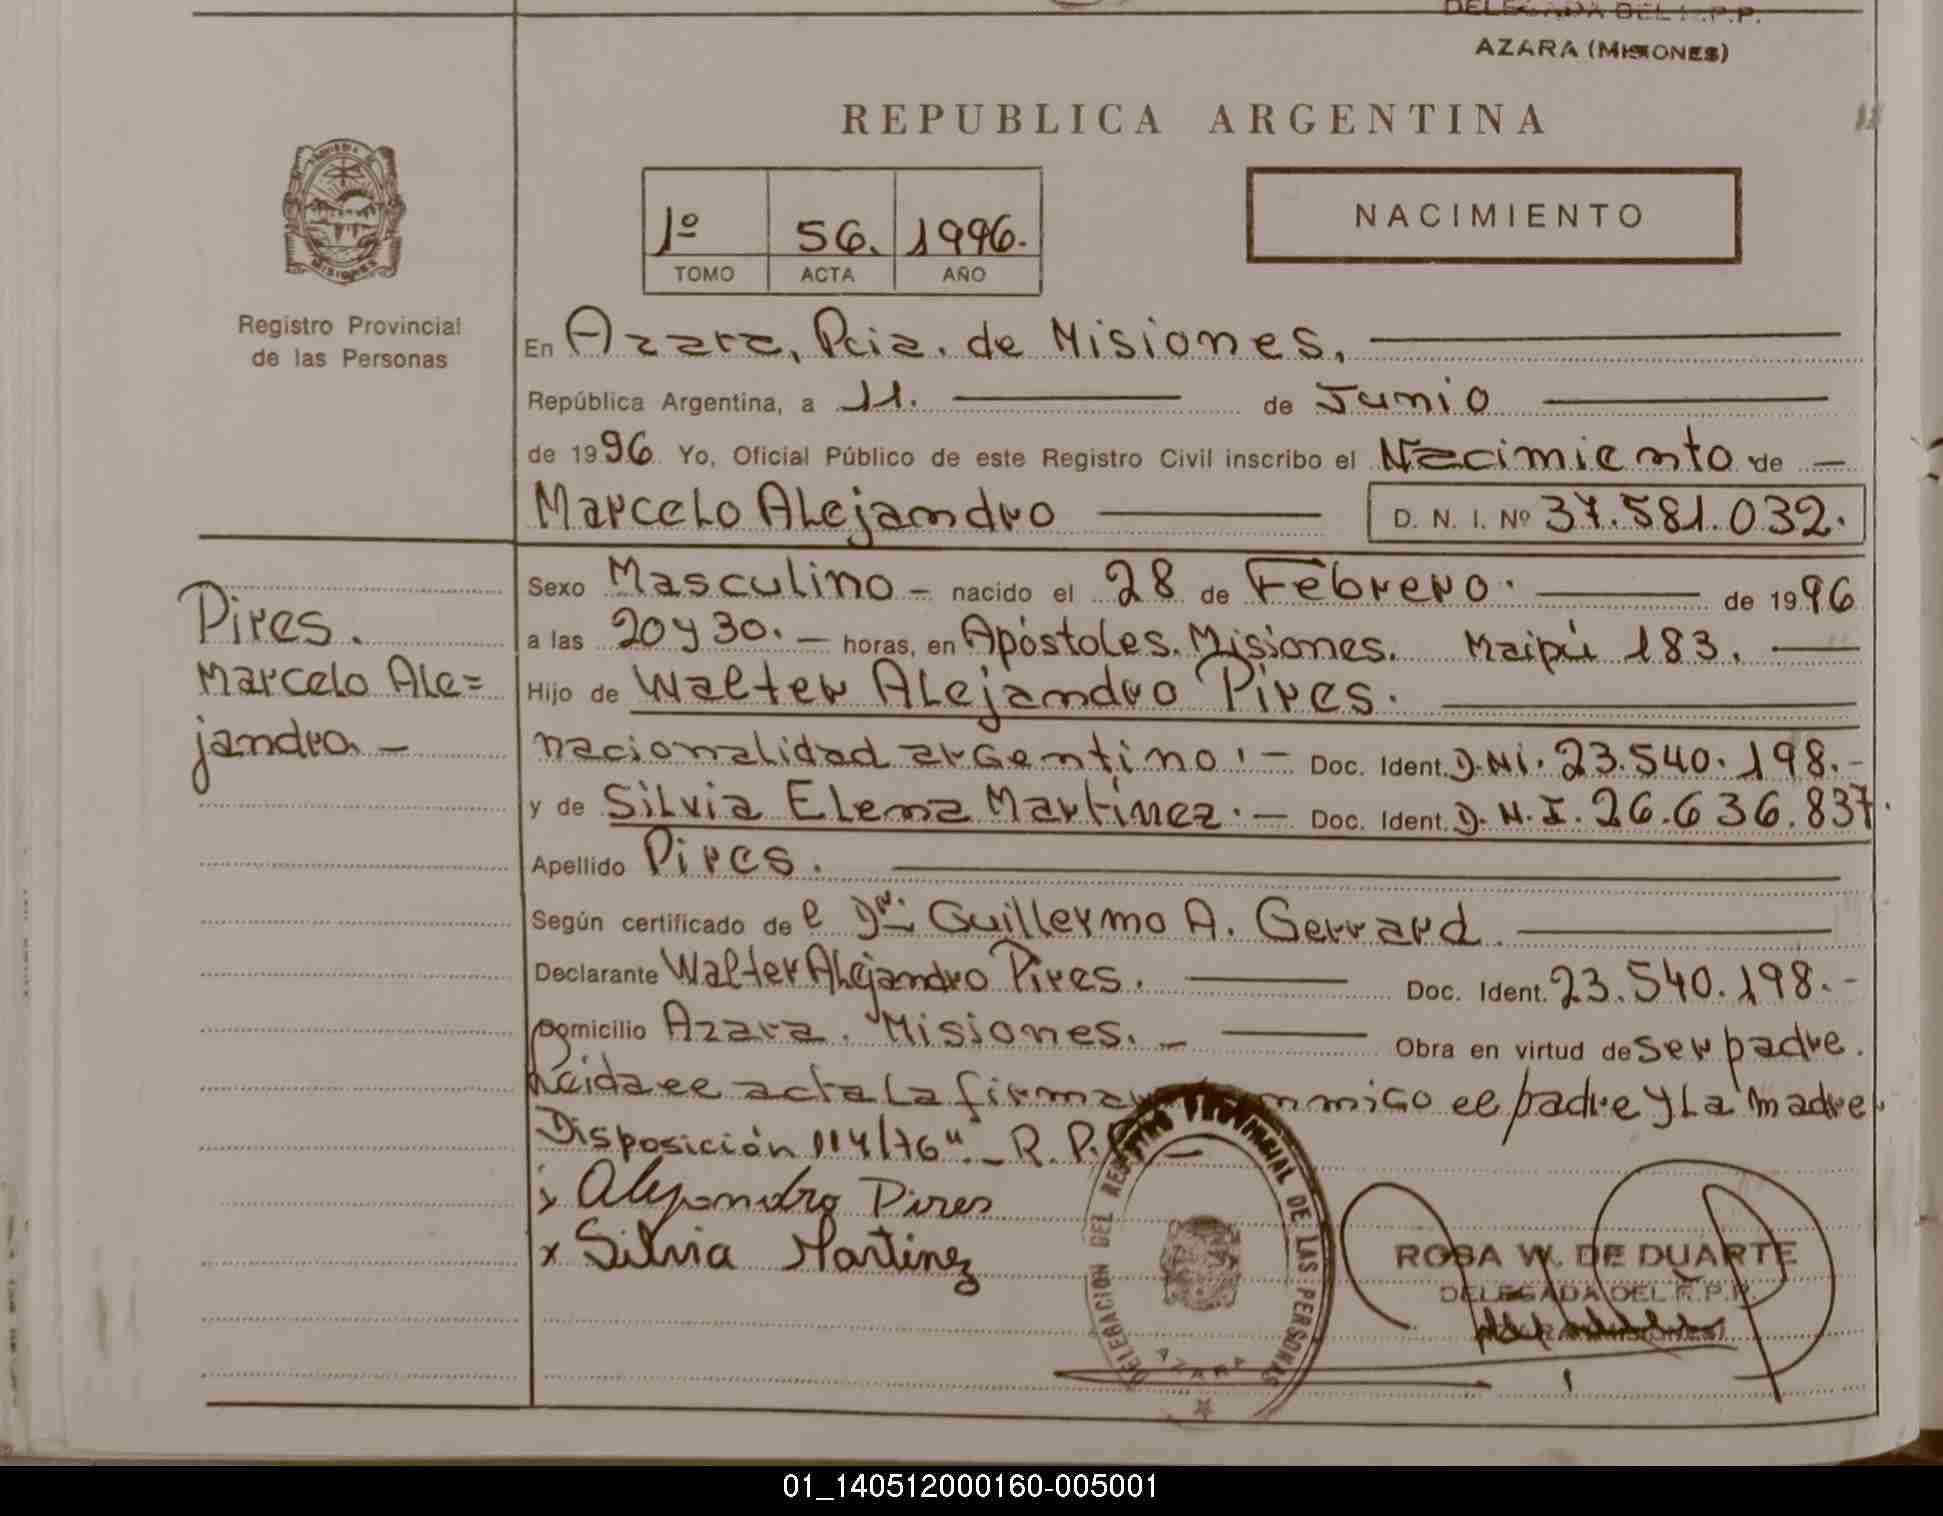 DELEGADA DEL R.P.P.
AZARA (MISIONES)
REPUBLICA ARGENTINA
NACIMIENTO
1º 56. 1996.
TOMO ACTA AÑO
MISIONES
Registro Provincial
de las Personas
En Azara, Pcia. de Misiones,
República Argentina, a 11. de Junio
de 1996 Yo, Oficial Público de este Registro Civil inscribo el Nacimiento de
Marcelo Alejandro D. N. I. Nº 37.581.032.
Pires.
Marcelo Ale=
jandro. -
Sexo Masculino - nacido el 28 de Febrero. de 1996
a las 20 y 30. - horas, en Apóstoles. Misiones. Maipú 183.
Hijo de Walter Alejandro Pires.
nacionalidad argentino. - Doc. Ident. D.Ni. 23.540.198.-
y de Silvia Elena Martínez. - Doc. Ident. D.N.I. 26.636.837.
Apellido Pires.
Según certificado de l Dr. Guillermo A. Gerrard
Declarante Walter Alejandro Pires. Doc. Ident. 23.540.198.-
Domicilio Azara. Misiones. - Obra en virtud de Ser padre.
Leída el acta La firman conmigo el padre y La madre
Disposición 114/76". - R.P.P. -
x Alejandro Pires
x Silvia Martinez
DELEGACION DEL REGISTRO PROVINCIAL DE LAS PERSONAS
AZARA
ROSA W. DE DUARTE
DELEGADA DEL R.P.P.
01_140512000160-005001